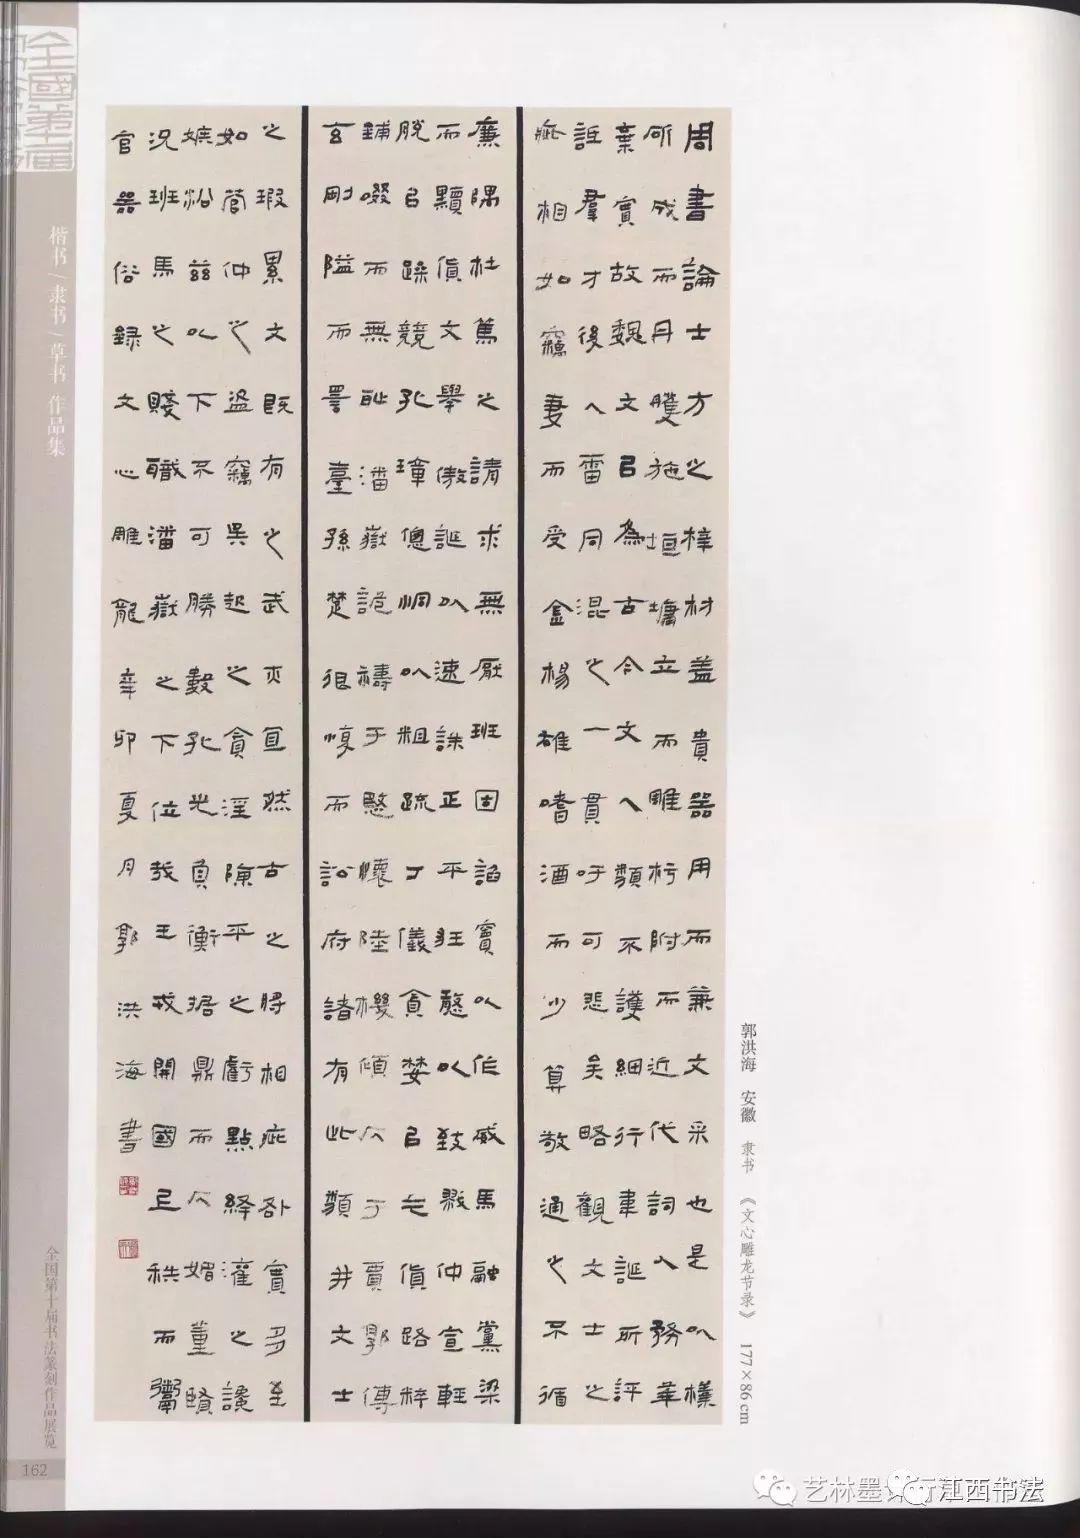 周書論士方之梓材蓋貴器用而兼文采也是以樸
斫成而丹雘施垣墉立而雕杇附而近代詞人務華
棄實故魏文以為古今文人類不護細行韋誕所評
詆羣才後人雷同混之一貫吁可悲矣略觀文士之
疵相如竊妻而受金楊雄嗜酒而少算敬通之不循
廉隅杜篤之請求無厭班固諂竇以作威馬融黨梁
而黷貨文舉傲誕以速誅正平狂憨以致戮仲宣輕
脫以躁競孔璋傯恫以粗疏丁儀貪婪以乞貨路粹
餔啜而無恥潘嶽詭禱于愍懷陸機傾仄于賈郭傅
玄剛隘而詈臺孫楚很愎而訟府諸有此類并文士
之瑕累文既有之武亦宜然古之將相疵咎實多至
如管仲之盜竊吳起之貪淫陳平之虧點絳灌之讒
嫉沿茲以下不可勝數孔光負衡據鼎而仄媚董賢
況班馬之賤職潘嶽之下位哉王戎開國上秩而鬻
官器俗録文心雕龍辛卯夏月郭洪海書
郭洪海 安徽 隶书 《文心雕龙节录》 177×86cm
楷书/隶书/草书 作品集
全国第十届书法篆刻作品展览
162
江西书法